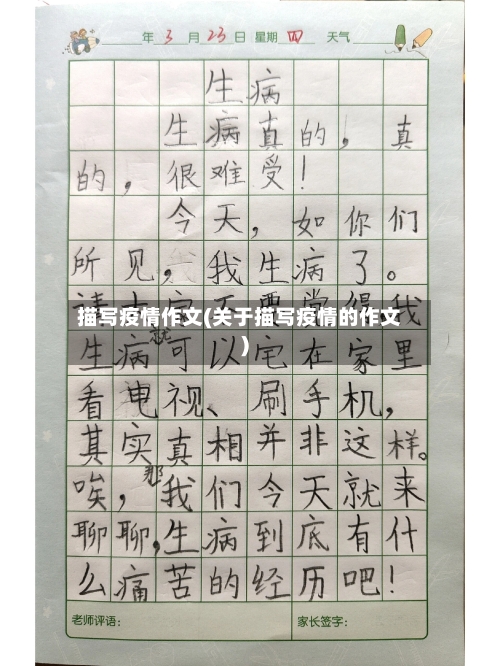 年 3 月 23 日 星期 四 天气
生病
生病真的，真
的，很难受！
今天，如你们
所见，我生病了。
描写疫情作文(关于描写疫情的作文
)
生病就可以宅在家里
看电视、刷手机，
其实真相并非这样。
唉，那我们今天就来
聊聊，生病到底有什
么痛苦的经历吧！
老师评语： 家长签字：